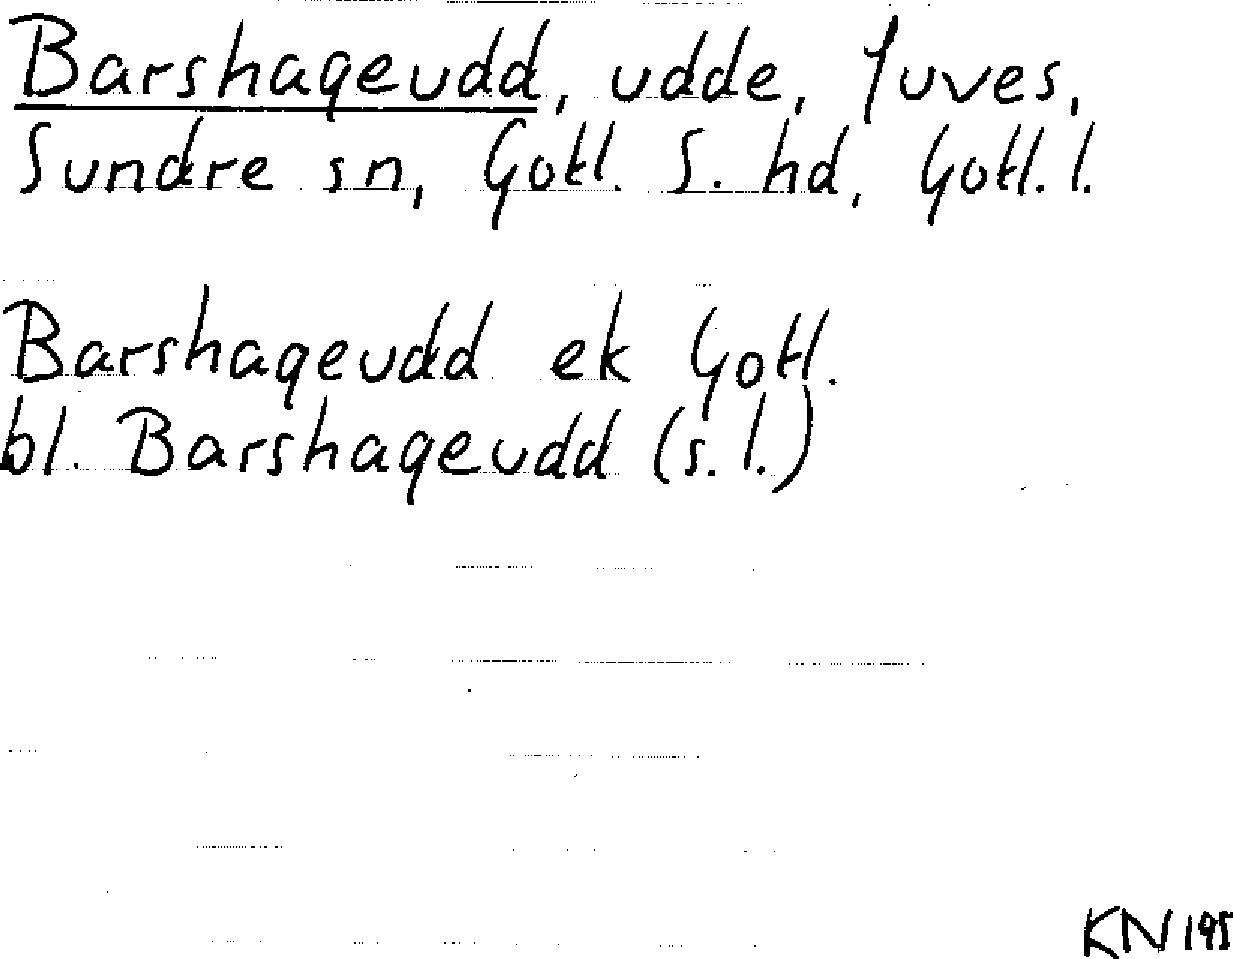 Barshageudd, udde, Juves,
Sundre sn, Gotl. S. hd, Gotl. l.
Barshageudd ek Gotl.
bl. Barshageudd (s. l.)
KN 195